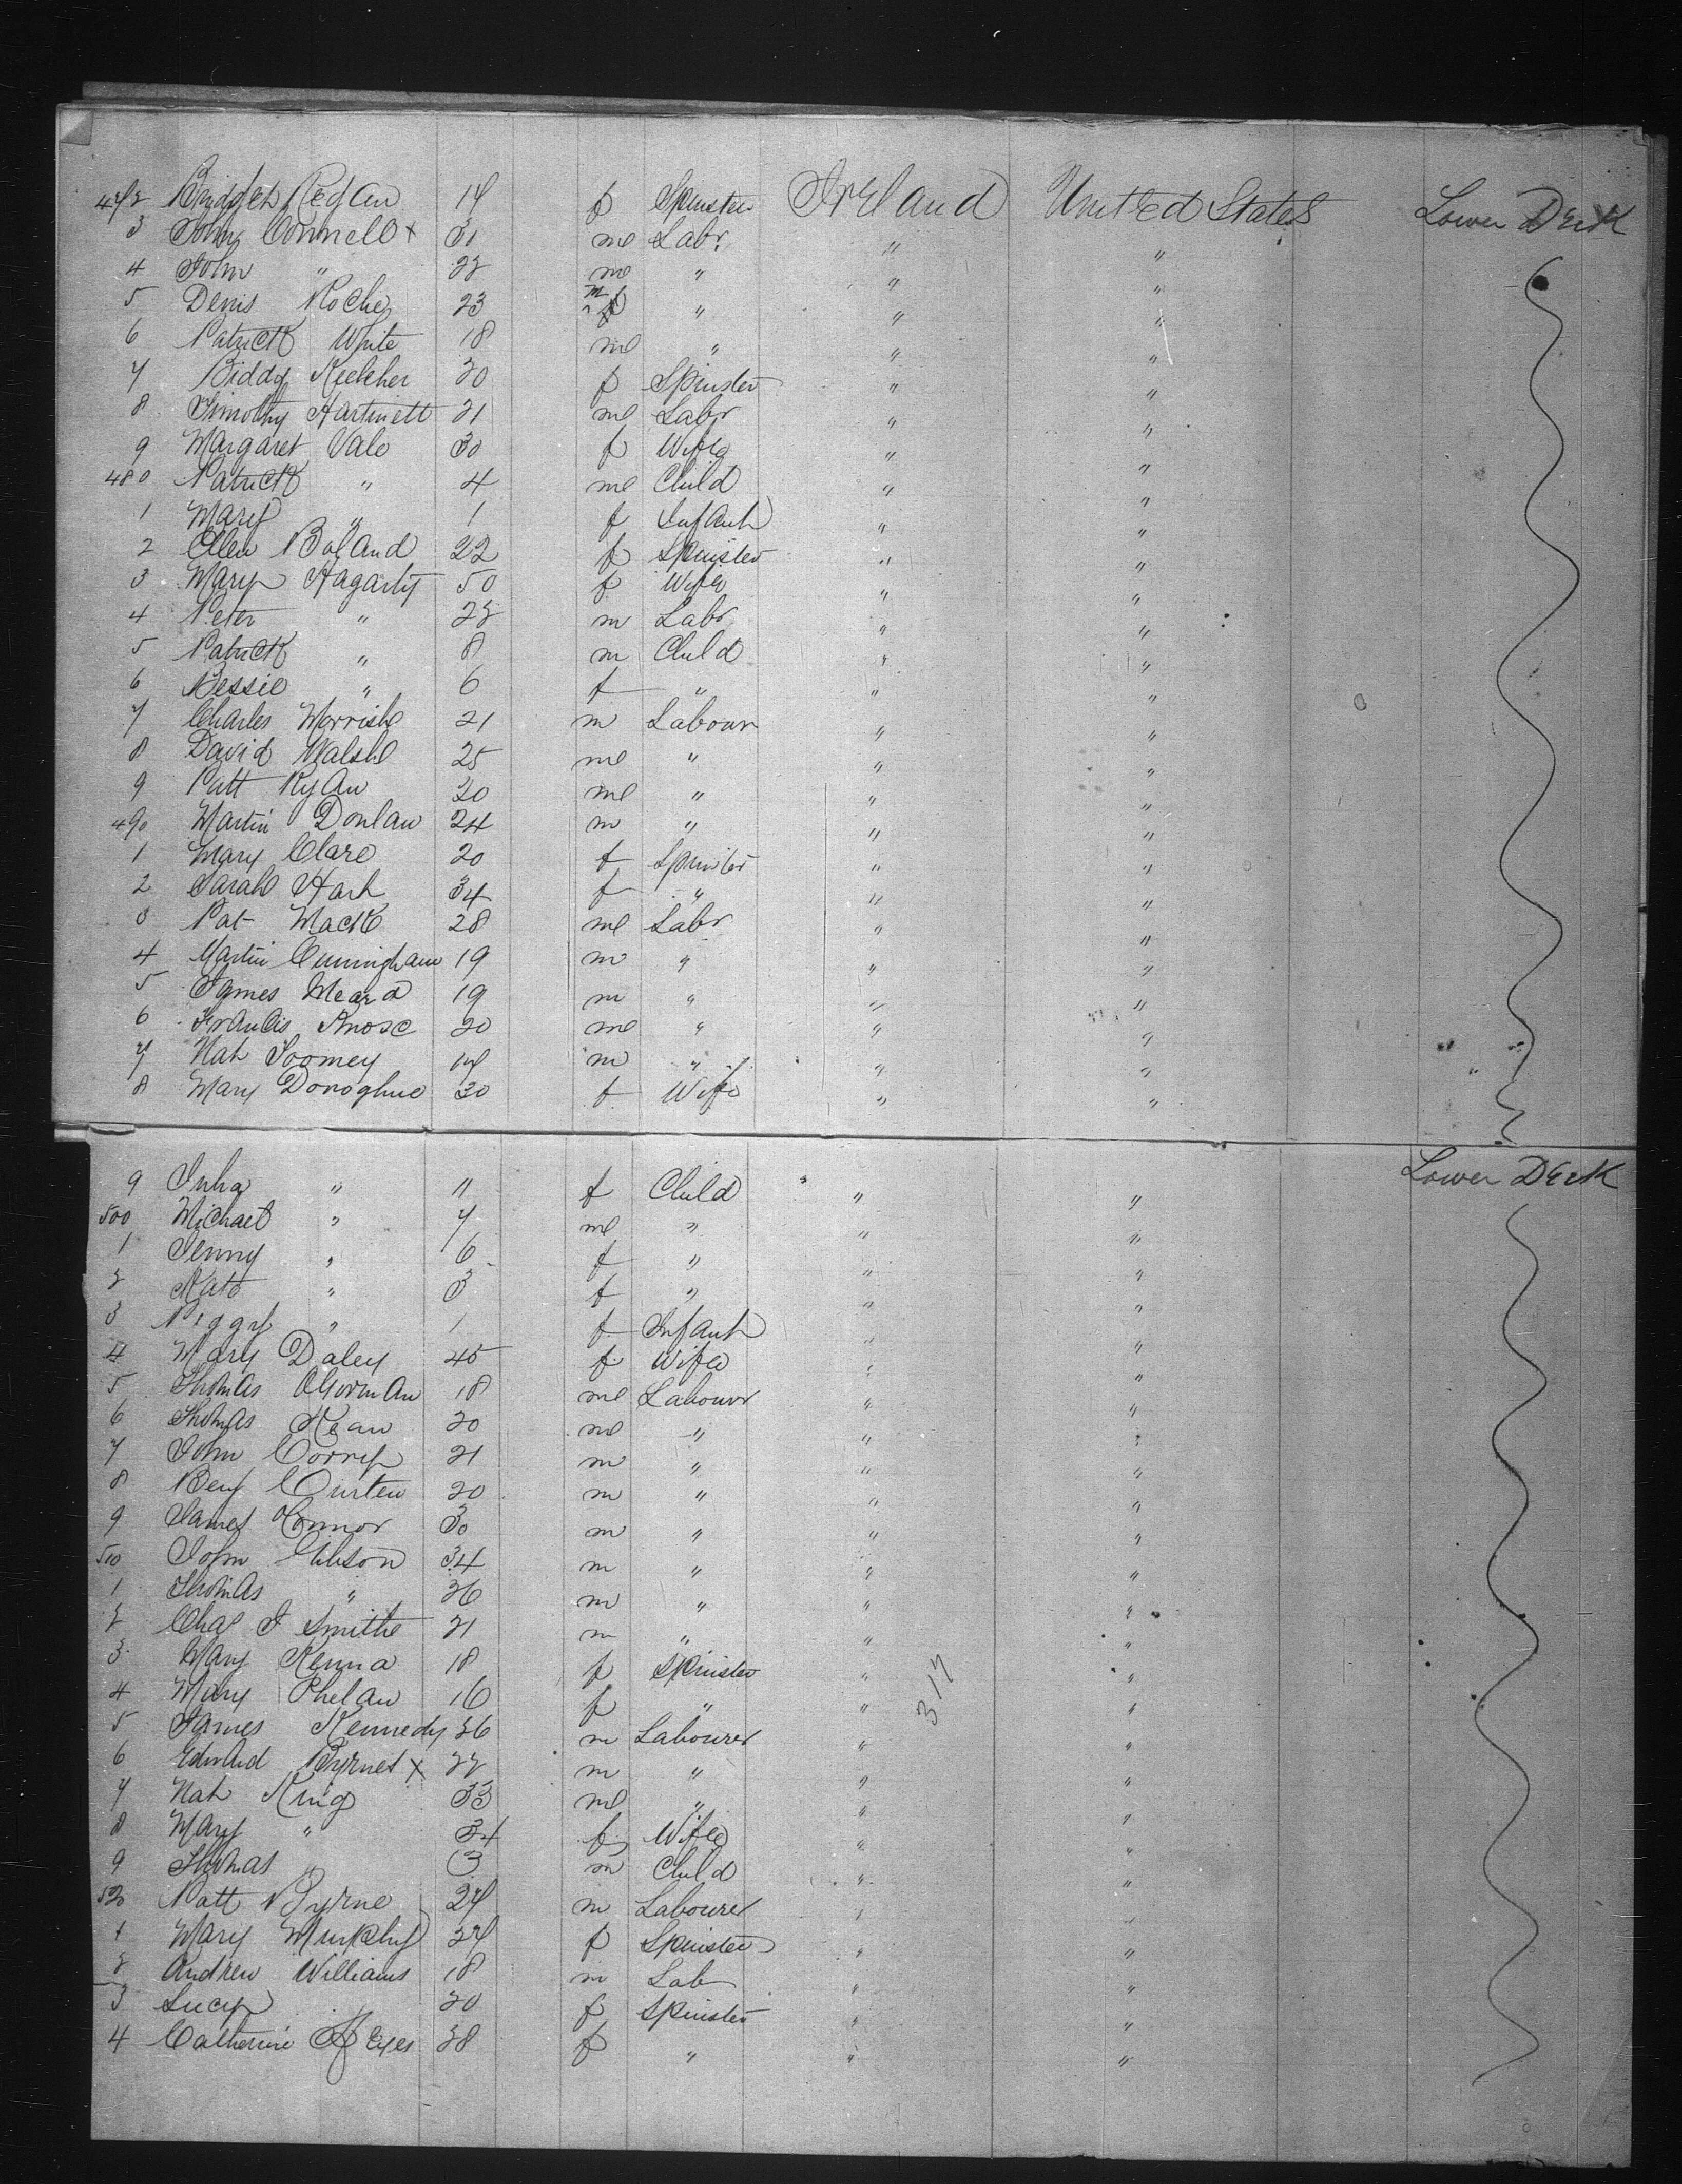 472 Bridget Regan 17 f Spinster Ireland United States Lower Deck
3 John Connell x 31 m Labr. " "
4 John " 22 m " " "
5 Denis Roche 23 m " " "
6 Patrick White 18 m " " "
7 Biddy Kelcher 20 f Spinster " "
8 Timothy Hartnett 21 m Labr " "
9 Margaret Vale 30 f Wife " "
480 Patrick " 4 m Child " "
1 Mary " 1 f Infant " "
2 Ellen Boland 22 f Spinster " "
3 Mary Hagarty 50 f Wife " "
4 Peter " 22 m Labr " "
5 Patrick " 8 m Child " "
6 Bessie " 6 f " " "
7 Charles Morrish 21 m Labour " "
8 David Walsh 25 m " " "
9 Patt Ryan 20 m " " "
490 Martin Donlan 24 m " " "
1 Mary Clare 20 f Spinster " "
2 Sarah Hart 34 f " " "
3 Pat Mack 28 m Labr " "
4 Martin Cunningham 19 m " " "
5 James Meara 19 m " " "
6 Francis 20 m " " "
7 Nat Toomey 17 m " " "
8 Mary Donoghue 30 f Wife " "
9 Julia " 11 f Child " " Lower Deck
500 Michael " 7 m " " "
1 Jenny " 6 f " " "
2 Kate " 3 f " " "
3 Peggy " 1 f Infant " "
4 Mary Daley 45 f Wife " "
5 Thomas OGorman 18 m Labour " "
6 Thomas Kean 20 m " " "
7 John Corry 21 m " " "
8 Benj Curten 20 m " " "
9 James Connor 30 m " " "
510 John Gibson 34 m " " "
1 Thomas " 36 m " " "
2 Chas J Smithe 21 m " " "
3 Mary Kenna 18 f Spinster " "
4 Mary Phelan 16 f " " 317 "
5 James Kennedy 26 m Labourer " "
6 Edward Byrnes x 22 m " " "
7 Nat King 33 m " " "
8 Mary " 34 f Wife " "
9 Thomas " 3 m Child " "
520 Patt Byrne 27 m Labourer " "
1 Mary Murphy 27 f Spinster " "
2 Andrew Williams 18 m Lab " "
3 Lucy 20 f Spinster " "
4 Catherine 28 f " " "